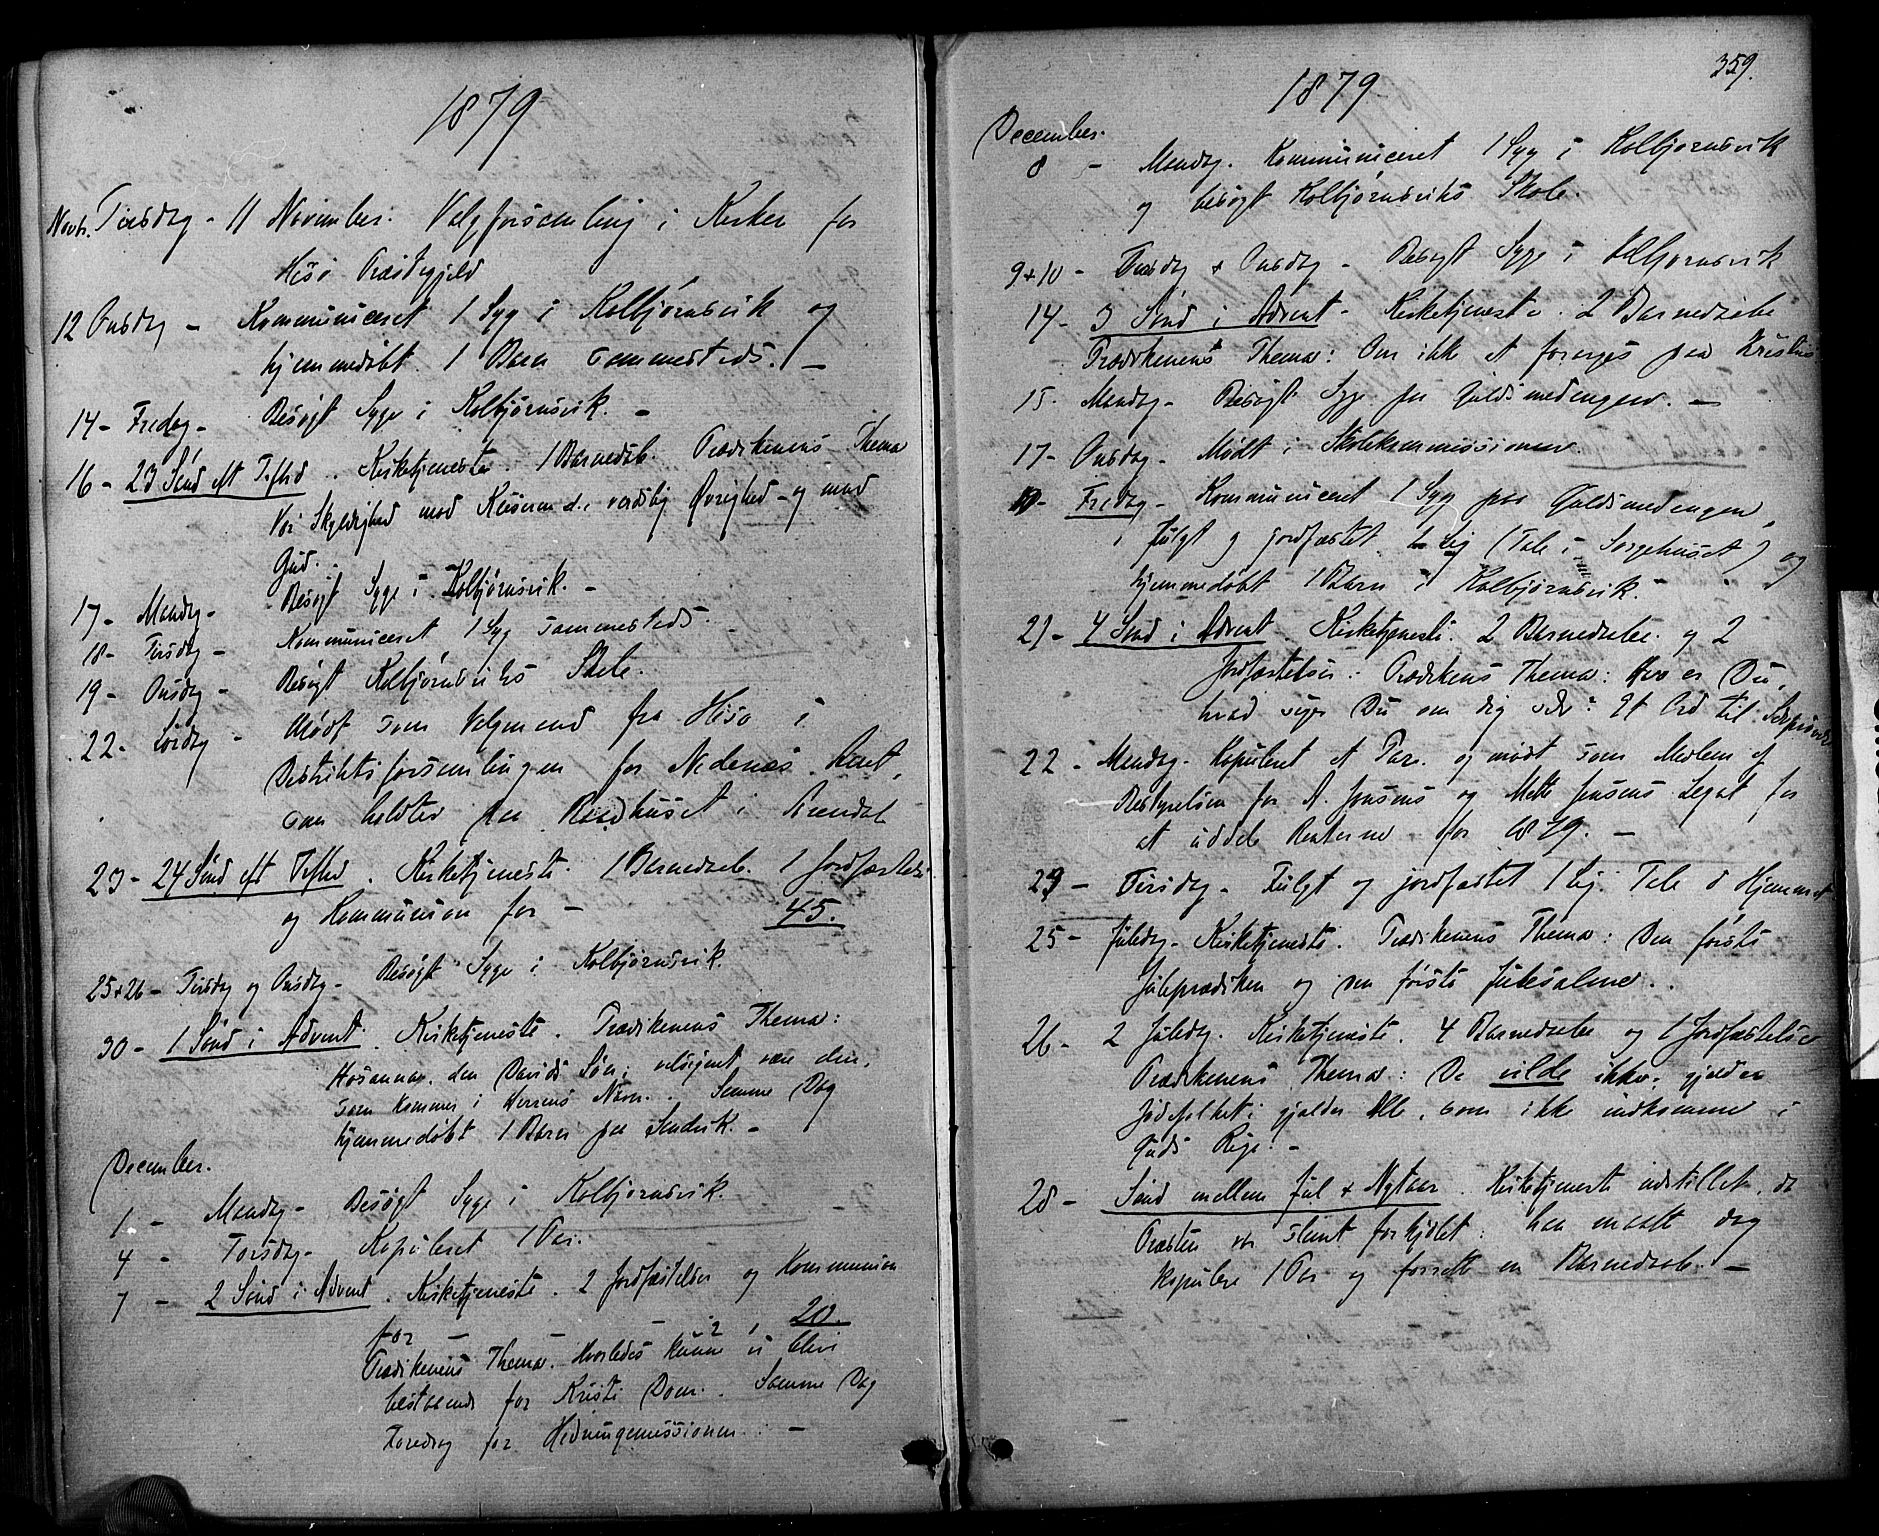 1879
Novbr. Tirsdag - 11 November. Valgforsamling i Kirken for
Hisø Præstegjeld
12 Onsdag - Kommuniceret 1 Syg i Kolbjørnsvik og
hjemmedøbt 1 Barn sammesteds. -
14 - Fredag - Besøgt Syge i Kolbjørnsvik. -
16 - 23 Sønd eft Trftd. Kirketjeneste. 1 Barnedaab. Prædikenens Thema
Vor Skyldighed mod Keiseren d.e. verdslig Øvrighed - og mod
Gud.
17 - Mandag - Besøgt Syge i Kolbjørnsvik. -
18 - Tirsdag - Kommuniceret 1 Syg sammesteds.
19 - Onsdag - Besøgt Kolbjørnsviks Skole.
22 - Lørdag - Mødt som Valgmand fra Hisø i
Distriktsforsamlingen for Nedenæs Amt,
som holdtes paa Raadhuset i Arendal
23 - 24 Sønd eft Trftd. Kirketjeneste. 1 Barnedaab. 1 Jordfæstelse
og Kommunion for - 45.
25+26 - Tirsdag og Onsdag - Besøgt Syge i Kolbjørnsvik.
30 - 1 Sønd i Advent. Kirketjeneste. Prædikenens Thema:
Hosanna, den Davids Søn; velsignet være den,
som kommer i Herrens Navn. Samme Dag
hjemmedøbt 1 Barn paa
December.
1 - Mandag - Besøgt Syge i Kolbjørnsvik.
4 - Torsdag - Kopuleret 1 Par.
7 - 2 Sønd i Advent. Kirketjeneste. 2 Jordfæstelser og Kommunion
for - - 20.
Prædikenens Thema. Hvorledes kunne vi blive
bestaaende for Kristi Dom. Samme Dag
Foredrag for Hedningemissionen. -
359.
1879
December.
8 - Mandag. Kommuniceret 1 Syg i Kolbjørnsvik
og besøgt Kolbjørnsviks Skole.
9+10 - Tirsdag + Onsdag - Besøgt Syge i Kolbjørnsvik
14 - 3 Sønd i Advent - Kirketjeneste. 2 Barnedaabe
Prædikenens Thema: Om ikke at forarges paa Kristus
15. Mandag - Besøgt Syge paa Guldsmedengen. -
17 - Onsdag - Mødt i Skolekommissionen.
Fredag - Kommuniceret 1 Syg paa Guldsmedengen,
fulgt og jordfæstet 1 Lig (Tale i Sørgehuset) og
hjemmedøbt 1 Barn i Kolbjørnsvik.
21 - 4 Sønd i Advent. Kirketjeneste. 2 Barnedaabe og 2
Jordfæstelser. Prædikenens Thema: Hvo er Du,
hvad siger Du om dig selv? Et Ord til
22 - Mandag - Kopuleret et Par. og mødt som Medlem af
Bestyrelsen for A. Jensens og Mette Jensens Legat for
at uddele Renterne for 1879. -
23 - Tirsdag - Fulgt og jordfæstet 1 Lig. Tale i Hjemmet
25 - Juledag - Kirketjeneste. Prædikenens Thema: Den første
Juleprædiken og den første Julesalme.
26 - 2 Juledag. Kirketjeneste. 4 Barnedaabe og 1 Jordfæstelse
Prædikenens Thema: De vilde ikke; gjelder
Jødefolket; gjelder Alle, som ikke indkomme i
Guds Rige. -
28 - Sønd mellem Jul + Nytaar. Kirketjeneste indstillet, da
Præsten var slemt forkjølet; han maatte dog
kopulere 1 Par og forrette en Barnedaab. -